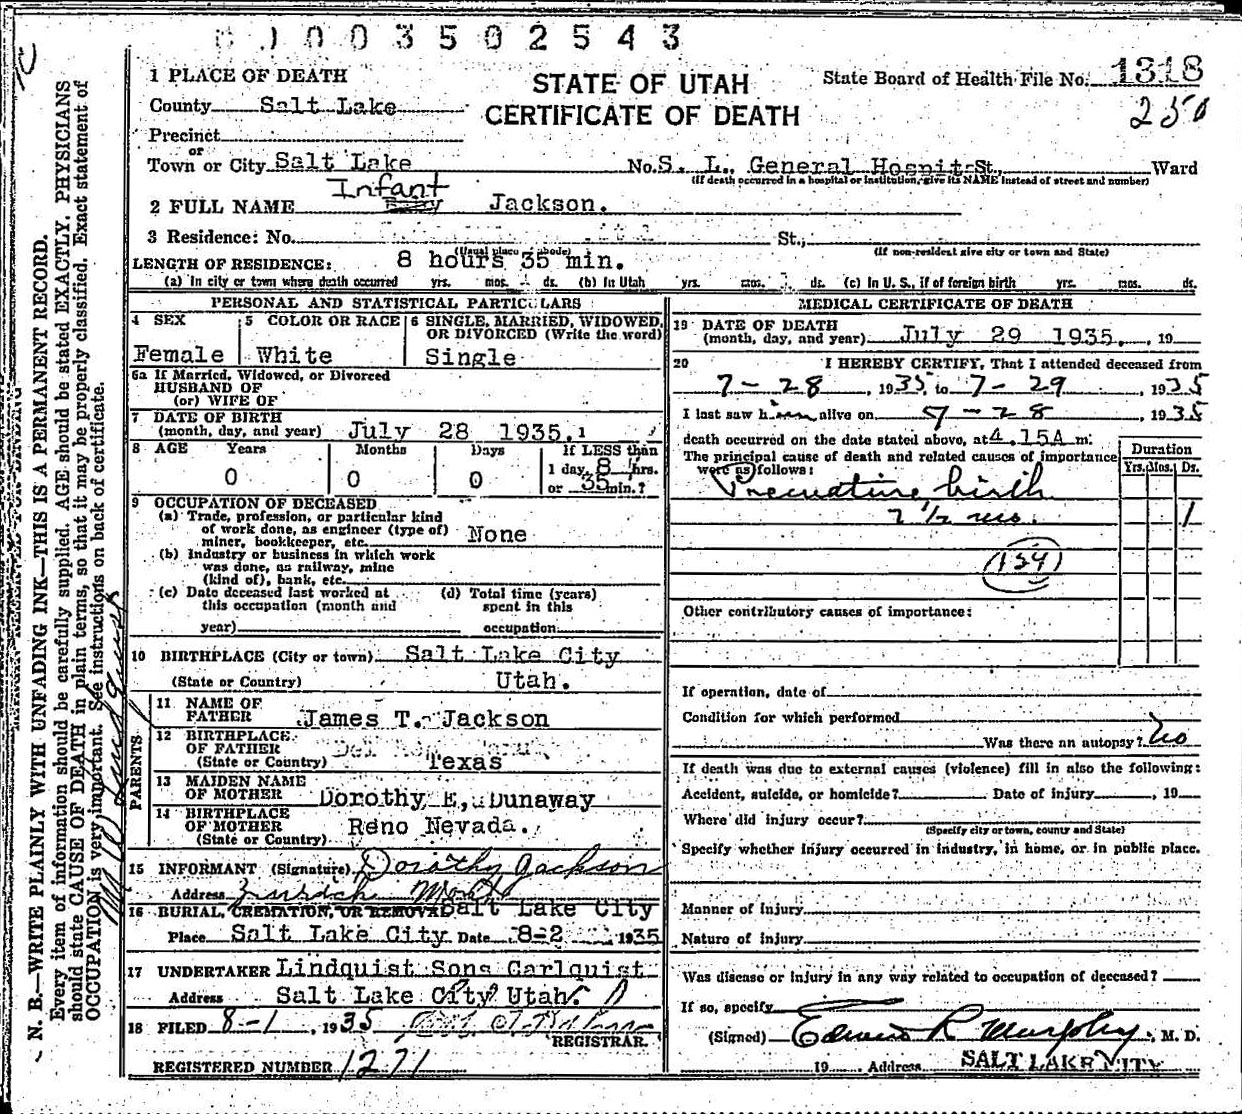 1003502543
1 PLACE OF DEATH
STATE OF UTAH
CERTIFICATE OF DEATH
State Board of Health File No. 1318
250
County Salt Lake
Precinct
or
Town or City Salt Lake No. S. L. General Hospit St., Ward
(If death occurred in a hospital or institution, give its NAME instead of street and number)
Infant
2 FULL NAME Jackson.
3 Residence: No. St.,
(Usual place of abode) (If non-resident give city or town and State)
LENGTH OF RESIDENCE: 8 hours 35 min.
(a) In city or town where death occurred yrs. mos. ds. (b) In Utah yrs. mos. ds. (c) In U. S., if of foreign birth yrs. mos. ds.
PERSONAL AND STATISTICAL PARTICULARS
4 SEX
Female
5 COLOR OR RACE
White
6 SINGLE, MARRIED, WIDOWED,
OR DIVORCED (Write the word)
Single
6a If Married, Widowed, or Divorced
HUSBAND OF
(or) WIFE OF
7 DATE OF BIRTH
(month, day, and year) July 28 1935.
8 AGE Years Months Days If LESS than
0 0 0 1 day, 8 hrs.
or 35 min.?
9 OCCUPATION OF DECEASED
(a) Trade, profession, or particular kind
of work done, as engineer (type of)
miner, bookkeeper, etc. None
(b) Industry or business in which work
was done, as railway, mine
(kind of), bank, etc.
(c) Date deceased last worked at
this occupation (month and
year)
(d) Total time (years)
spent in this
occupation
10 BIRTHPLACE (City or town) Salt Lake City
(State or Country) Utah.
PARENTS
11 NAME OF
FATHER James T. Jackson
12 BIRTHPLACE
OF FATHER
(State or Country) Texas
13 MAIDEN NAME
OF MOTHER Dorothy E. Dunaway
14 BIRTHPLACE
OF MOTHER Reno Nevada.
(State or Country)
15 INFORMANT (Signature) Dorothy Jackson
Address
16 BURIAL, CREMATION, OR REMOVAL Salt Lake City
Place Salt Lake City Date 8-2 1935
17 UNDERTAKER Lindquist Sons Carlquist
Address Salt Lake City Utah.
18 FILED 8-1, 1935
REGISTRAR.
REGISTERED NUMBER 1271
MEDICAL CERTIFICATE OF DEATH
19 DATE OF DEATH
(month, day, and year) July 29 1935., 19
20 I HEREBY CERTIFY, That I attended deceased from
7-28, 1935, to 7-29, 1935
I last saw him alive on 7-28, 1935
death occurred on the date stated above, at 4.15A m.
The principal cause of death and related causes of importance
were as follows:
Duration
Yrs. Mos. Ds.
Premature birth
7 1/2 mo. 1
Other contributory causes of importance:
If operation, date of
Condition for which performed
Was there an autopsy? No
If death was due to external causes (violence) fill in also the following:
Accident, suicide, or homicide? Date of injury, 19
Where did injury occur?
(Specify city or town, county and State)
Specify whether injury occurred in industry, in home, or in public place.
Manner of injury
Nature of injury
Was disease or injury in any way related to occupation of deceased?
If so, specify
(Signed) Edward R Murphy, M. D.
19 Address SALT LAKE CITY
N. B.—WRITE PLAINLY WITH UNFADING INK—THIS IS A PERMANENT RECORD.
Every item of information should be carefully supplied. AGE should be stated EXACTLY. PHYSICIANS
should state CAUSE OF DEATH in plain terms, so that it may be properly classified. Exact statement of
OCCUPATION is very important. See instructions on back of certificate.